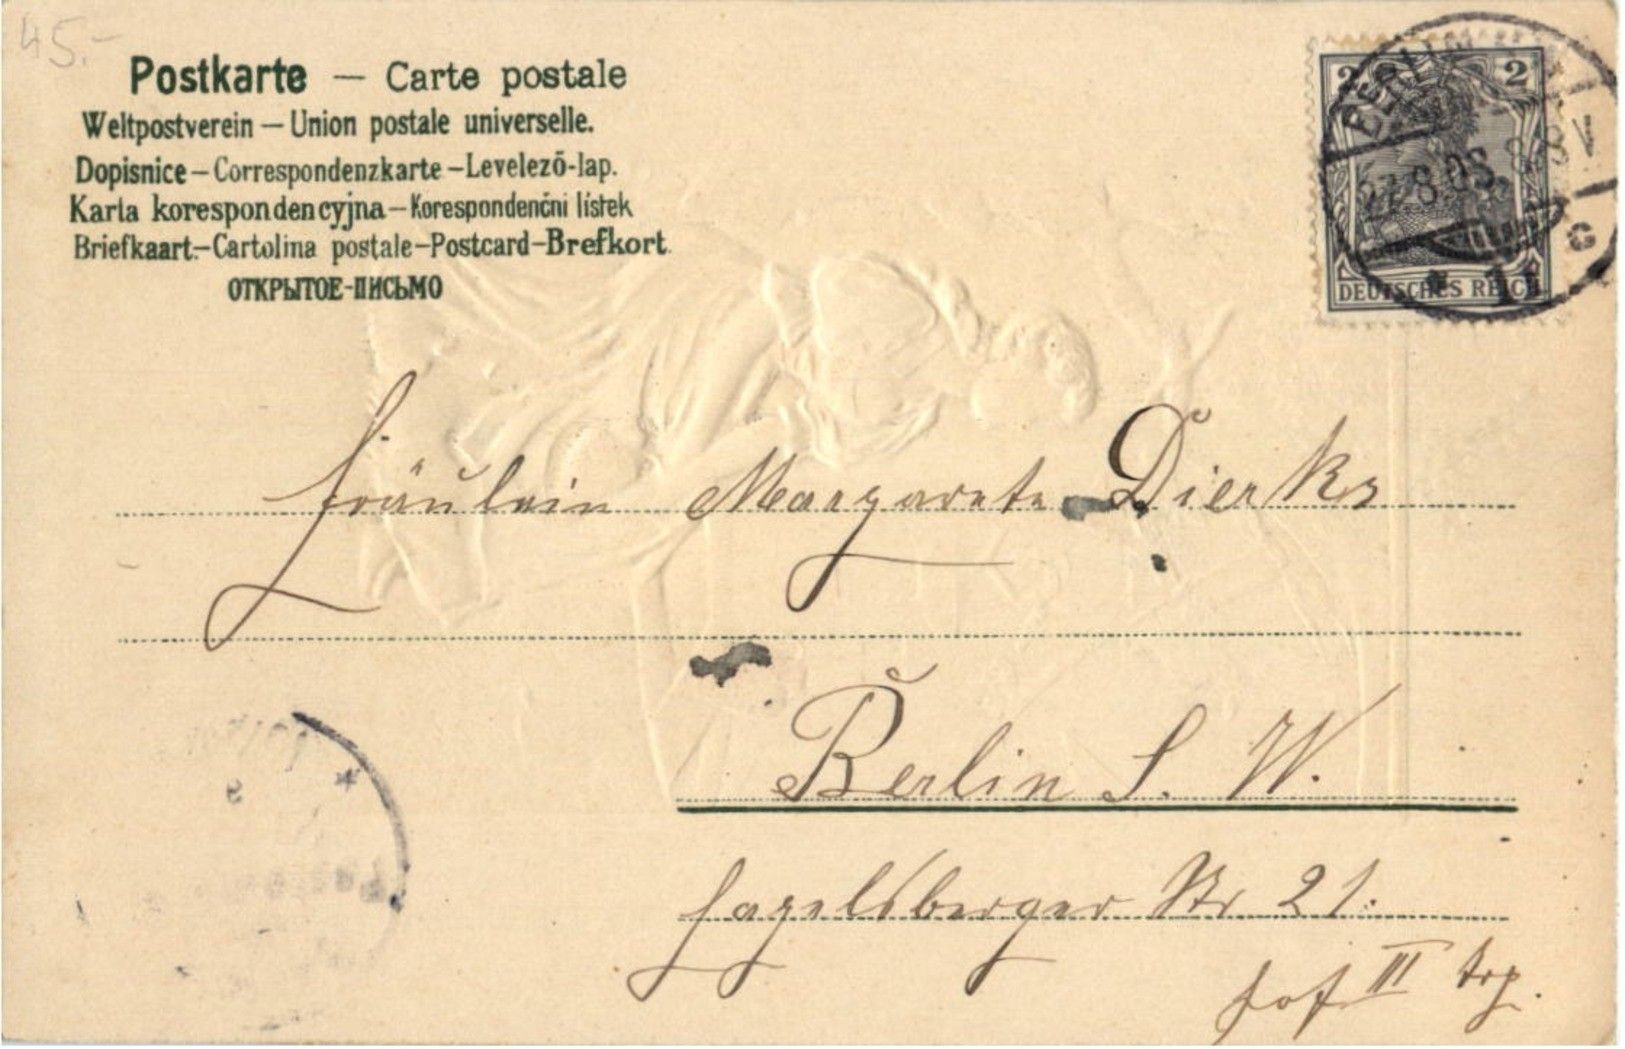 45.-
Postkarte — Carte postale
Weltpostverein — Union postale universelle.
Dopisnice — Correspondenzkarte — Levelező-lap.
Karta korespondencyjna — Korespondenčni listek
Briefkaart — Cartolina postale — Postcard — Brefkort.
ОТКРЫТОЕ-ПИСЬМО
2 2
DEUTSCHES REICH
BERLIN
8.05. 8-
11
c
Fräulein Margarete Dierks
Berlin S. W.
Hagelsberger Str 21.
Hof III Trp.